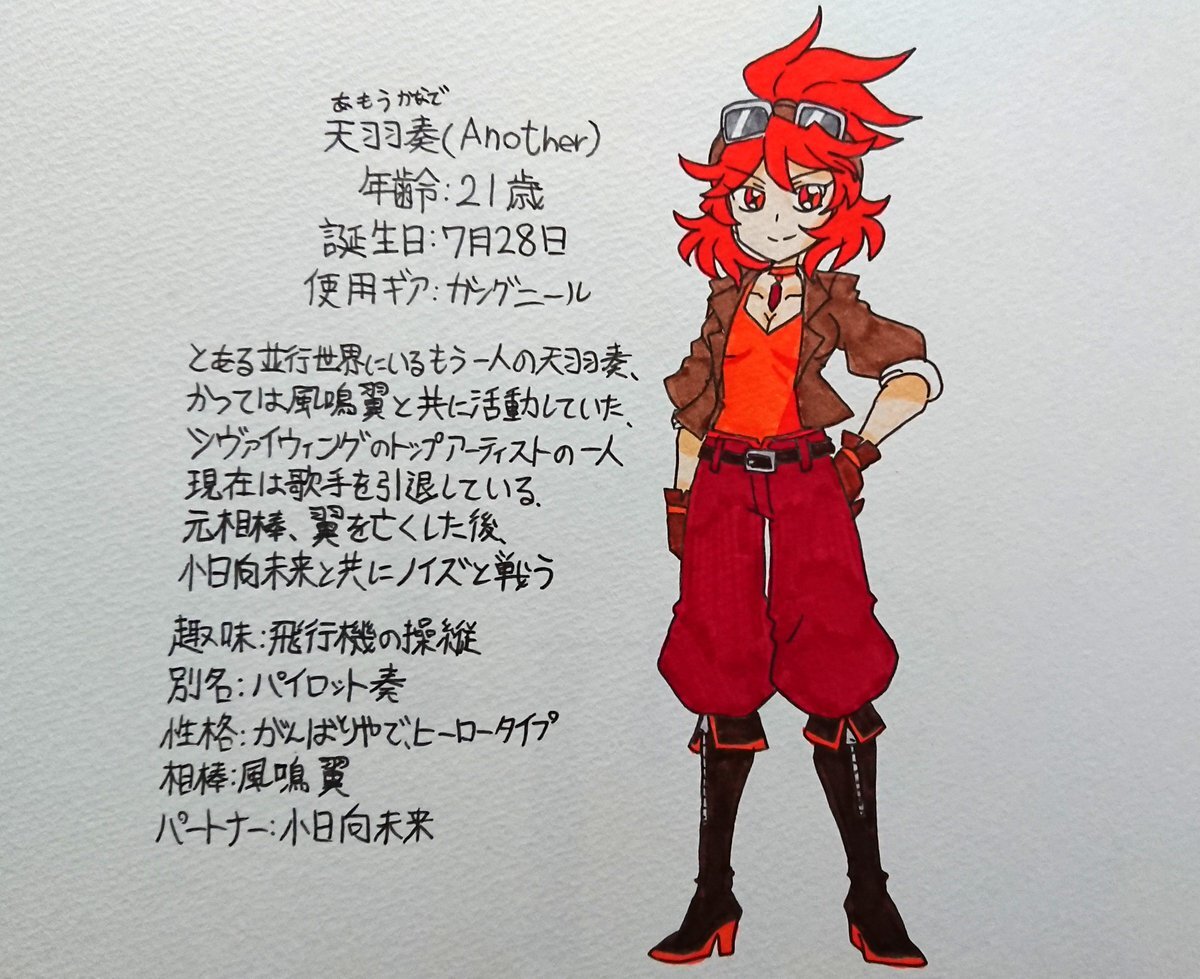 あもうかなで
天羽奏(Another)
年齢:21歳
誕生日:7月28日
使用ギア:ガングニール
とある並行世界にいるもう一人の天羽奏、
かつては風鳴翼と共に活動していた、
ツヴァイウィングのトップアーティストの一人
現在は歌手を引退している。
元相棒、翼を亡くした後、
小日向未来と共にノイズと戦う
趣味:飛行機の操縦
別名:パイロット奏
性格:がんばりやで、ヒーロータイプ
相棒:風鳴翼
パートナー:小日向未来